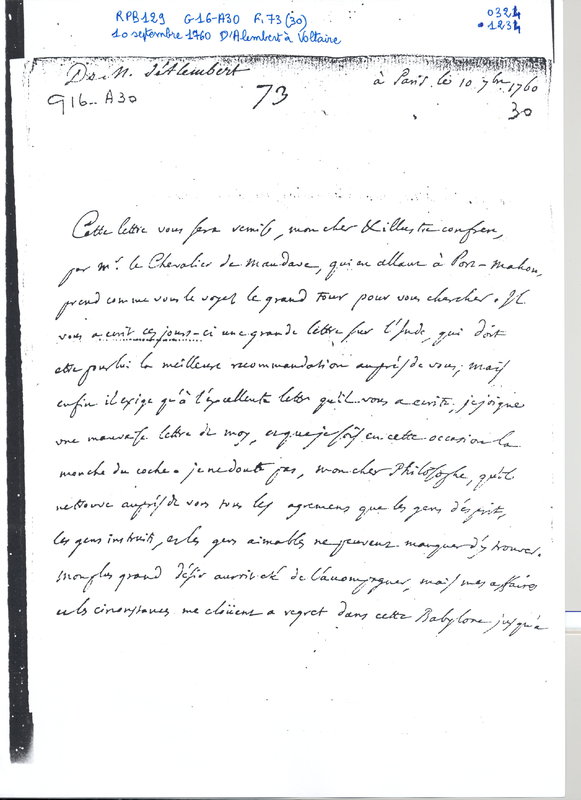 RPB129 G-16-A30 F. 73 (30)
0324
10 septembre 1760 D'Alembert à Voltaire
1234
De M. d'Alembert
à Paris le 10 7bre 1760
G16-A30
73
30
Cette lettre vous sera remise, mon cher & illustre confrere,
par mr. le Chevalier de Maudave, qui en allant à Port-Mahon,
prend comme vous le voyez le grand tour pour vous chercher. Il
vous a ecrit ces jours-ci une grande lettre sur l'Inde, qui doit
etre pour lui la meilleure recommandation auprès de vous; mais
enfin il exige qu'à l'excellente lettre qu'il vous a ecrite, je joigne
une mauvaise lettre de moy, et que je sois en cette occasion la
mouche du coche. je ne doute pas, mon cher Philosophe, qu'il
ne trouve auprès de vous tous les agremens que les gens d'esprit,
les gens instruits, et les gens aimables ne peuvent manquer d'y trouver.
Mon plus grand désir auroit eté de l'accompagner, mais mes affaires
et les circonstances me clouent a regret dans cette Babylone jusqu'a